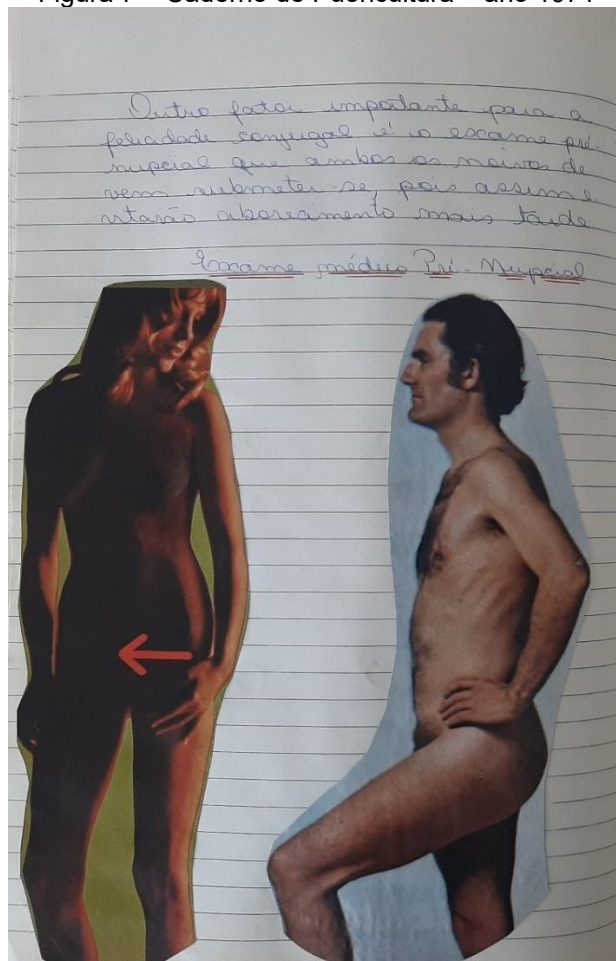 Outro fator importante para a
felicidade conjugal é o exame pré-
nupcial que ambos os noivos de
vem submeter-se, pois assim e
vitarão aborecimento mais tarde.
Exame médico Pré-Nupcial